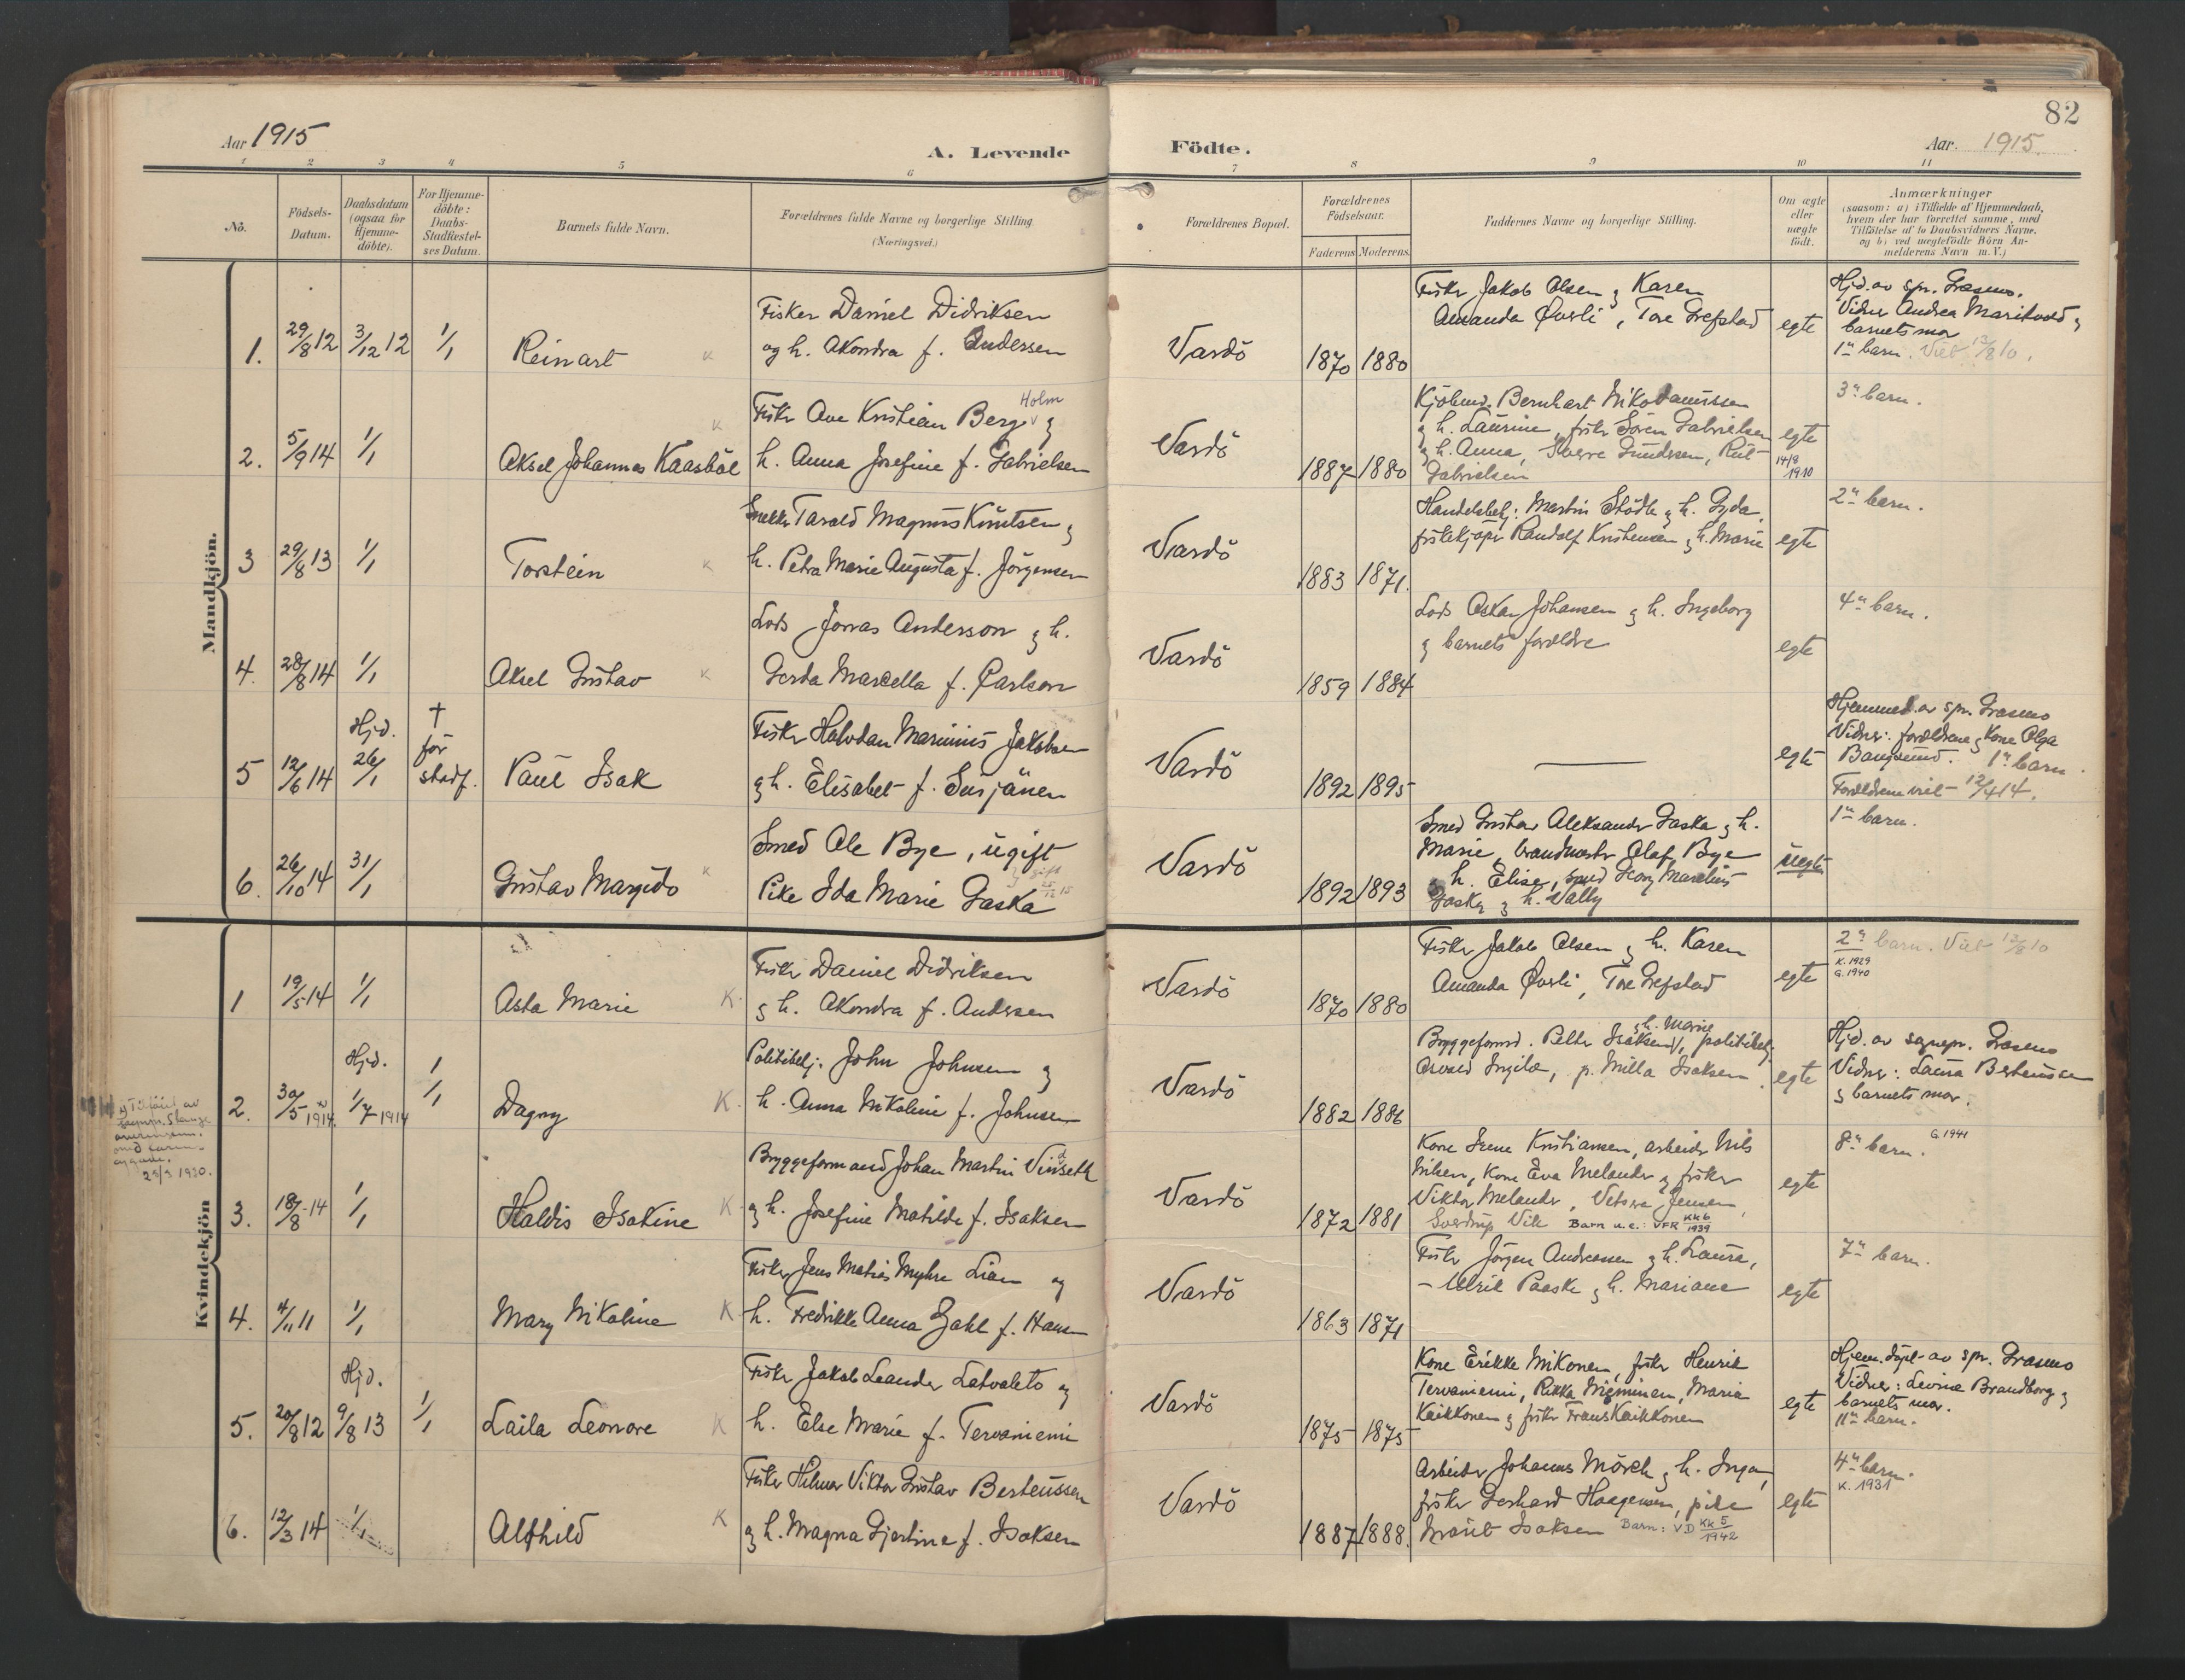 82
Aar 1915
A. Levende
Födte.
Aar. 1915
1 2 3 4 5 6 7 8 9 10 11
No.
Födsels-Datum.
Daabsdatum (ogsaa for Hjemme-döbte).
For Hjemme-döbte: Daabs-Stadfæstel-ses Datum.
Barnets fulde Navn.
Forældrenes fulde Navne og borgerlige Stilling
(Næringsvei.)
Forældrenes Bopæl.
Forældrenes Födselsaar.
Faderens Moderens
Faddernes Navne og borgerlige Stilling.
Om ægte eller uægte født.
Anmærkninger
(saasom: a) i Tilfælde af Hjemmedaab,
hvem der har forrettet samme, med
Tilföielse af to Daabsvidners Navne,
og b) ved uægtefödte Börn An-
melderens Navn m. V.)
Mandkjön.
1. 29/8 12 3/12 12 1/1 Reinart K
Fisker Daniel Didriksen
og h. Akondra f. Andersen
Vardö 1870 1880
Fisker Jakob Olsen og Karen
Amanda Øverli, Tore Grefstad
egte
Hjd. av spr. Grasmo.
Vidner Andrea
barnets mor
1ste barn. Viet 13/8 10.
2. 5/9 14 1/1 Aksel Johannes Kaasböl K
Holm
Fisker Ove Kristian Berg og
h. Anna Josefine f. Gabrielsen
Vardö 1887 1880
Kjöbmd. Bernhart Nikodamussen
og h. Laurine, fisker Sören Gabrielsen
og h. Anna, Sverre Gundersen, Rut
Gabrielsen
egte
14/9 1910
3die barn.
3 29/8 13 1/1 Torstein K
Snekker Tarald Magnus Knutsen og
h. Petra Marie Augusta f. Jörgensen
Vardö 1883 1871.
Handelsbetj: Martin Stödle og h. Gyda,
fiskekjöper Randolf Kristensen og h. Marie
egte
2det barn.
4. 28/8 14 1/1 Aksel Gustav K
Lods Jonas Anderson og h.
Gerda Marcella f. Carlson
Vardö 1859 1884
Lods Oskar Johansen og h. Ingeborg
og barnets forældre
egte
4de barn.
5 12/6 14 Hjd. 26/1 † før stadf. Paul Isak
Fisker Halvdan Marinius Jakobsen
og h. Elisabet f. Surjänen
Vardö 1892 1895
egte
Hjemmed. av spr. Grasmo
Vidner: forældrene og Kone Olga
Bangsund. 1ste barn.
Forældrene viet 12/4 14.
6. 26/10 14 31/1 Gustav Margido K
Smed Ole Bye, ugift
Pike Ida Marie Gaska
gift 25/12 15
Vardö 1892 1893
Smed Gustav Aleksander Gaska og h.
Marie, brandmester Olaf Bye
og h. Elise, smed Georg Marelius
Gaska og h. Vally
uegte
1ste barn.
Kvindekjön
1 19/5 14 1/1 Asta Marie K.
Fisker Daniel Didriksen
og h. Akondra f. Andersen
Vardö 1870 1880
Fisker Jakob Olsen og h. Karen
Amanda Øverli, Tore Grefstad
egte
2det barn. Viet 13/8 10
K. 1929
G. 1940
2. 30/5 1914 Hjd. 1/7 1914 1/1 Dagny K.
Politibetj. John Johnsen og
h. Anna Nikoline f. Johnsen
Vardö 1882 1886
og h. Marie
Bryggeformd. Petter Isaksen, politibetj.
Arvid Ingilæ, p. Milla Isaksen.
egte
Hjd. av sognepr. Grasmo
Vidner: Laura Berteussen
og barnets mor.
x) Tilföiet av
sognepr. Stange
med
25/3 1930.
3. 18/8 14 1/1 Haldis Isakine K
Bryggeformand Johan Martin Vinseth
og h. Josefine Matilde f. Isaksen
Vardö 1872 1881
Kone Irene Kristiansen, arbeider Nils
Nilsen, Kone Eva Melander og fisker
Viktor Melander, Jensen,
Sverdrup Vik Barn u.e.: VFR KK6 1939
egte
8de barn. G. 1941
4. 4/11 11 1/1 Mary Nikoline K
Fisker Jens Matias Myhre Lian og
h. Fredrikke Anna Zahl f. Hansen
Vardö 1863 1871
Fisker Jörgen Andreassen og h. Laura,
– Ulrik Paaske og h. Mariane
egte
7de barn.
5. 20/8 12 Hjd. 9/8 13 1/1 Laila Leonore K
Fisker Jakob Leander Latvaleto og
h. Else Marie f. Tervaniemi
Vardö 1875 1875
Kone Erikke Nikonen, fisker Henrik
Tervaniemi, Rikka Nigminen, Maria
Keikkonen og fisker Frans Keikkonen
egte
Hjem.döpt av spr. Grasmo
Vidner: Levine Brandborg og
barnets mor.
11te barn.
6. 12/3 14 1/1 Alfhild K
Fisker Hilmar Viktor Gustav Berteussen
og h. Magna Gjertine f. Isaksen
Vardö 1887 1888.
Arbeider Johannes Mörch og h. Inga,
fisker Gerhard Haagensen, pike
Marit Isaksen Barn: VD KK 5 1942
egte
4de barn.
K. 1931